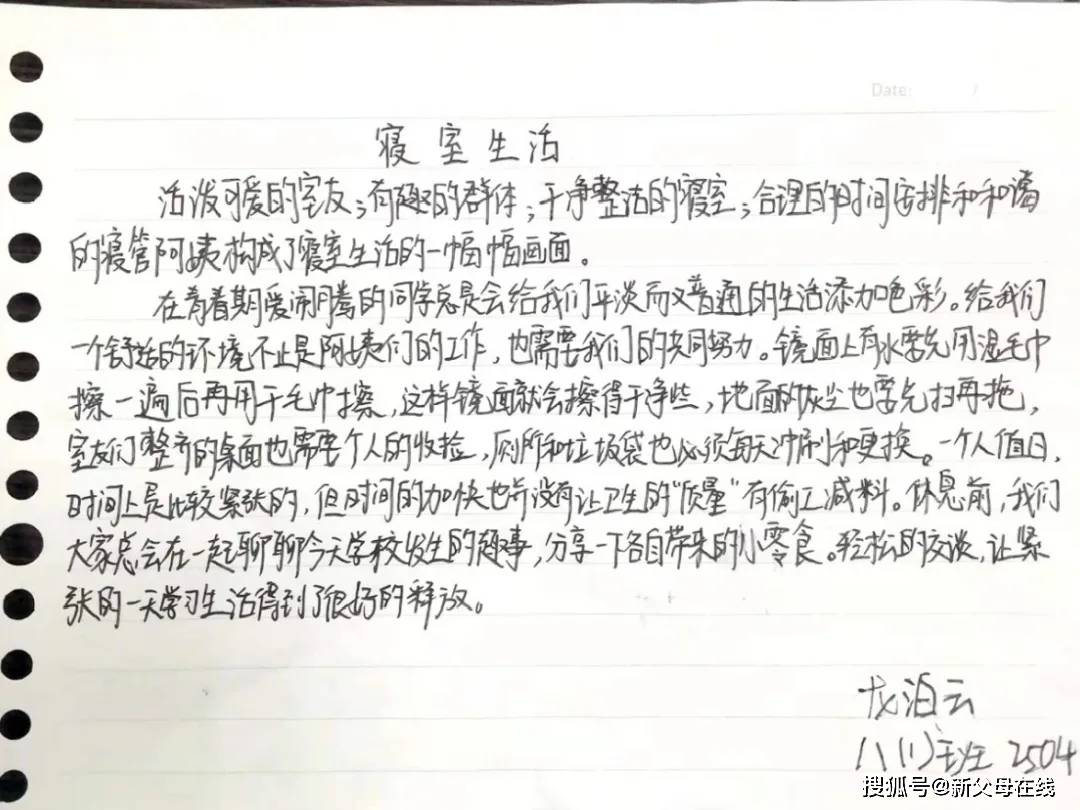 Date: /
寝室生活
活泼可爱的室友；有趣的群体；干净整洁的寝室；合理的时间安排和和谐
的寝管阿姨构成了寝室生活的一幅幅画面。
在青春期爱闹腾的同学总是会给我们平淡而又普通的生活添加色彩。给我们
一个舒适的环境不止是阿姨们的工作，也需要我们的共同努力。镜面上有水要先用湿毛巾
擦一遍后再用干毛巾擦，这样镜面就会擦得干净些，地面的灰尘也要先扫再拖，
室友们整齐的桌面也需要个人的收捡，厕所和垃圾袋也必须每天冲刷和更换。一个人值日，
时间上是比较紧张的，但时间的加快也并没有让卫生的“质量”有偷工减料。休息前，我们
大家总会在一起聊聊今天学校发生的趣事，分享一下各自带来的小零食。轻松的交谈，让紧
张的一天学习生活得到了很好的释放。
龙泊云
八(1)班 2504
搜狐号@新父母在线